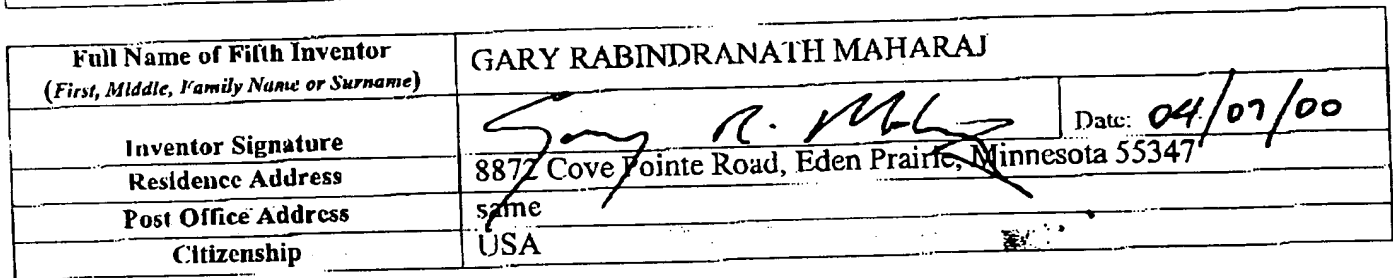 Full Name of Fifth Inventor
(First, Middle, Family Name or Surname)
GARY RABINDRANATH MAHARAJ
Inventor Signature
Gary R. Mahaj
Date: 04/07/00
Residence Address
8872 Cove Pointe Road, Eden Prairie, Minnesota 55347
Post Office Address
same
Citizenship
USA